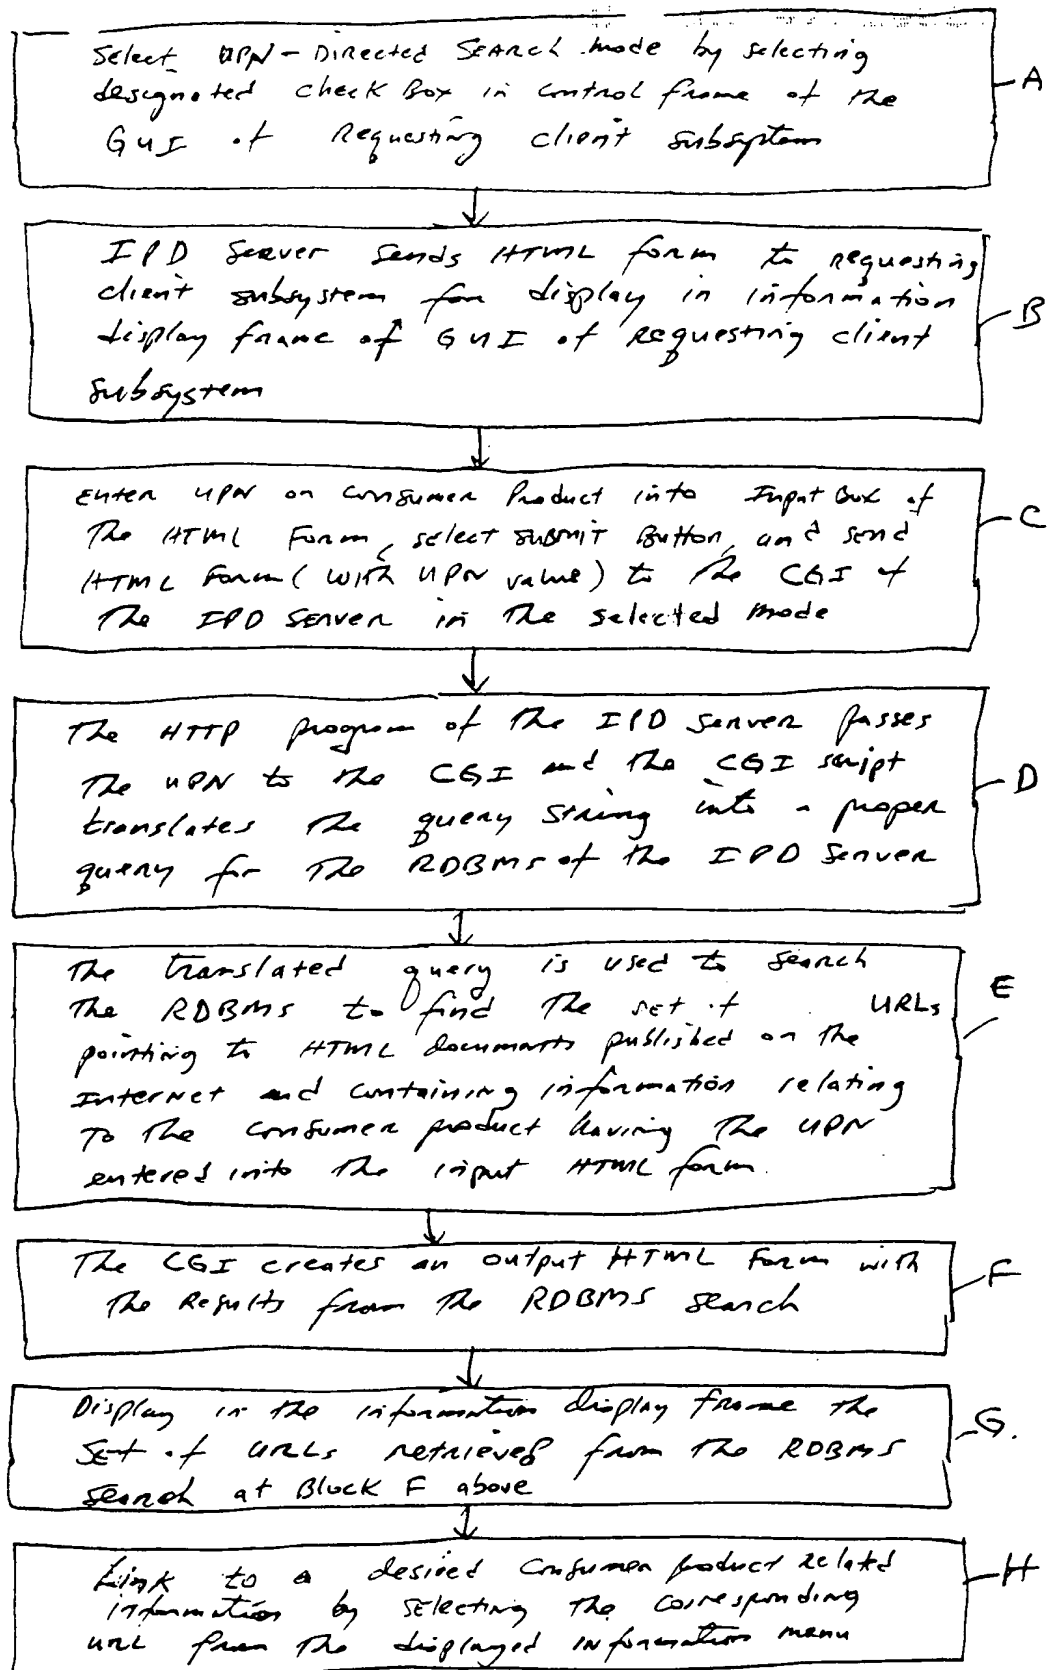 Select UPN-Directed Search mode by selecting
designated check Box in control frame of the
GUI of Requesting client subsystem
A
IPD Server sends HTML form to requesting
client subsystem for display in information
display frame of GUI of Requesting client
subsystem
B
Enter UPN on Consumer Product into Input Box of
The HTML Form, select submit Button, and send
HTML Form (with UPN value) to the CGI of
The IPD Server in the selected mode
C
The HTTP program of the IPD server passes
The UPN to the CGI and the CGI script
translates the query string into a proper
query for the RDBMS of the IPD Server
D
The translated query is used to search
The RDBMS to find the set of URLs
pointing to HTML documents published on the
Internet and containing information relating
To the consumer product having the UPN
entered into the input HTML form.
E
The CGI creates an output HTML Form with
the Results from the RDBMS search
F
Display in the information display frame the
Set of URLs retrieved from the RDBMS
Search at Block F above
G.
Link to a desired Consumer product related
information by selecting the corresponding
URL from the displayed information menu
H